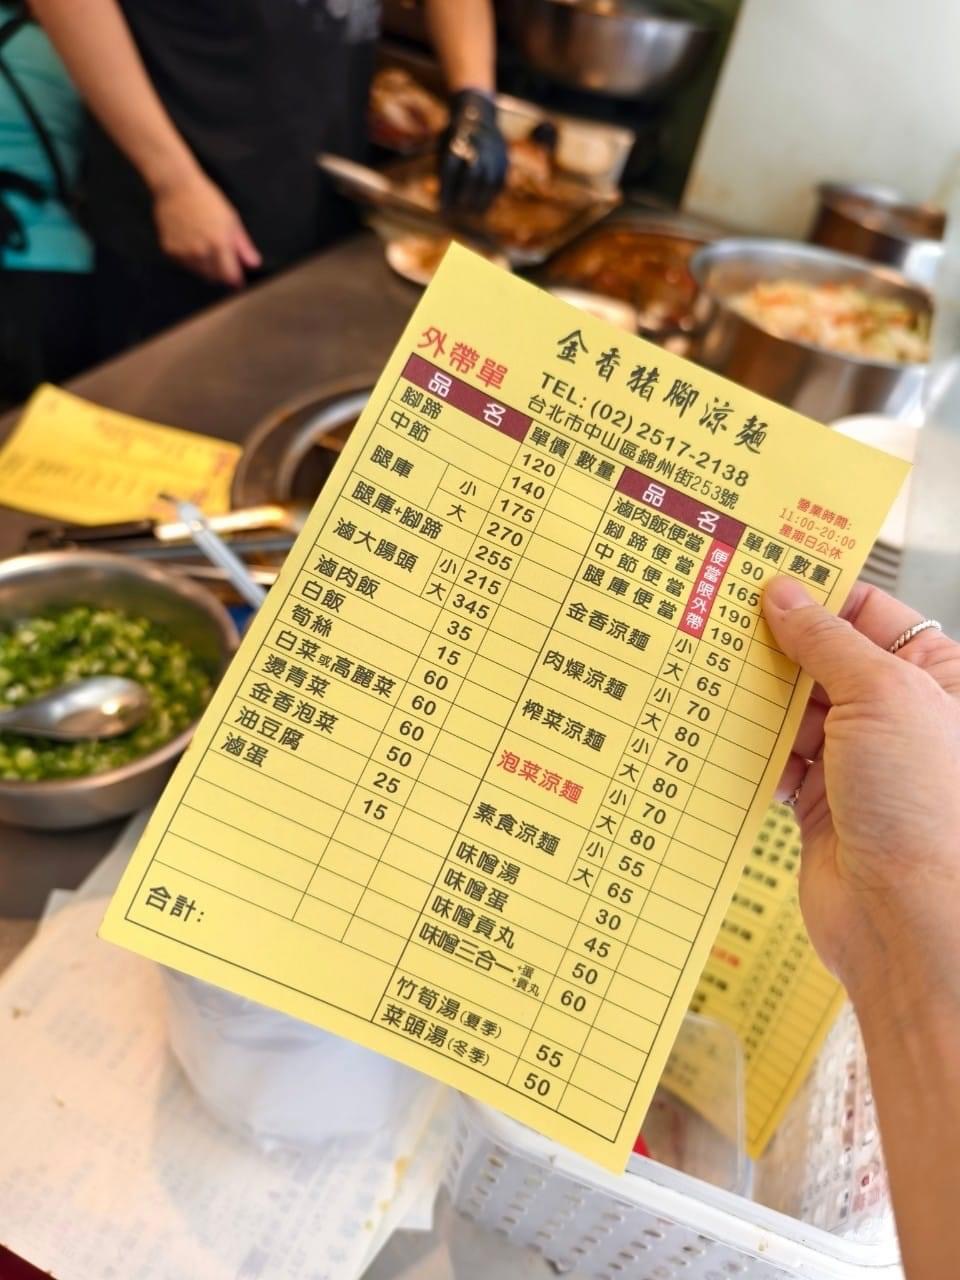 金香猪腳涼麵
外帶單
TEL: (02) 2517-2138
台北市中山區錦州街253號
營業時間:
11:00-20:00
星期日公休
品名 單價 數量
腳蹄 120
中節 140
腿庫 小 175
大 270
腿庫+腳蹄 255
滷大腸頭 小 215
大 345
滷肉飯 35
白飯 15
筍絲 60
白菜或高麗菜 60
燙青菜 60
金香泡菜 50
油豆腐 25
滷蛋 15
合計:
品名 單價 數量
滷肉飯便當 90
腳蹄便當 165
中節便當 190
腿庫便當 190
便當限外帶
金香涼麵 小 55
大 65
肉燥涼麵 小 70
大 80
榨菜涼麵 小 70
大 80
泡菜涼麵 小 70
大 80
素食涼麵 小 55
大 65
味噌湯 30
味噌蛋 45
味噌貢丸 50
味噌三合一 +蛋 +貢丸 60
竹筍湯(夏季) 55
菜頭湯(冬季) 50